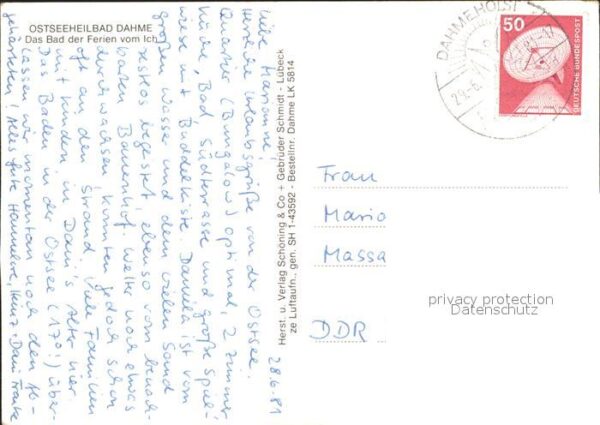 OSTSEEHEILBAD DAHME
Das Bad der Ferien vom Ich
28.6.81
Liebe Marianne!
Herzliche Urlaubsgrüße von der Ostsee.
Quartier (Bungalow) optimal, 2 Zimmer,
Küche, Bad, Südterrasse und große Spiel-
wiese mit Buddelkiste. Daniela ist vom
großen Wasser und dem vielen Sand
restlos begeistert, ebenso vom benach-
barten Bauernhof. Wetter noch etwas
durchwachsen, konnten jedoch schon
oft an den Strand. Viele Familien
mit Kindern in Dani's Alter hier.
Das Baden in der Ostsee (17°!) über-
lassen wir momentan noch den Ab-
gehärteten! Alles Gute Hannelore, Heinz + Dani
Herst. u. Verlag Schöning & Co + Gebrüder Schmidt - Lübeck
ze Luftaufn., gen. SH 1-43592 - Bestellnr. Dahme LK 5814
DAHME HOLST
29.-6.
50
DEUTSCHE BUNDESPOST
Frau
Mario
Massa
DDR
privacy protection
Datenschutz